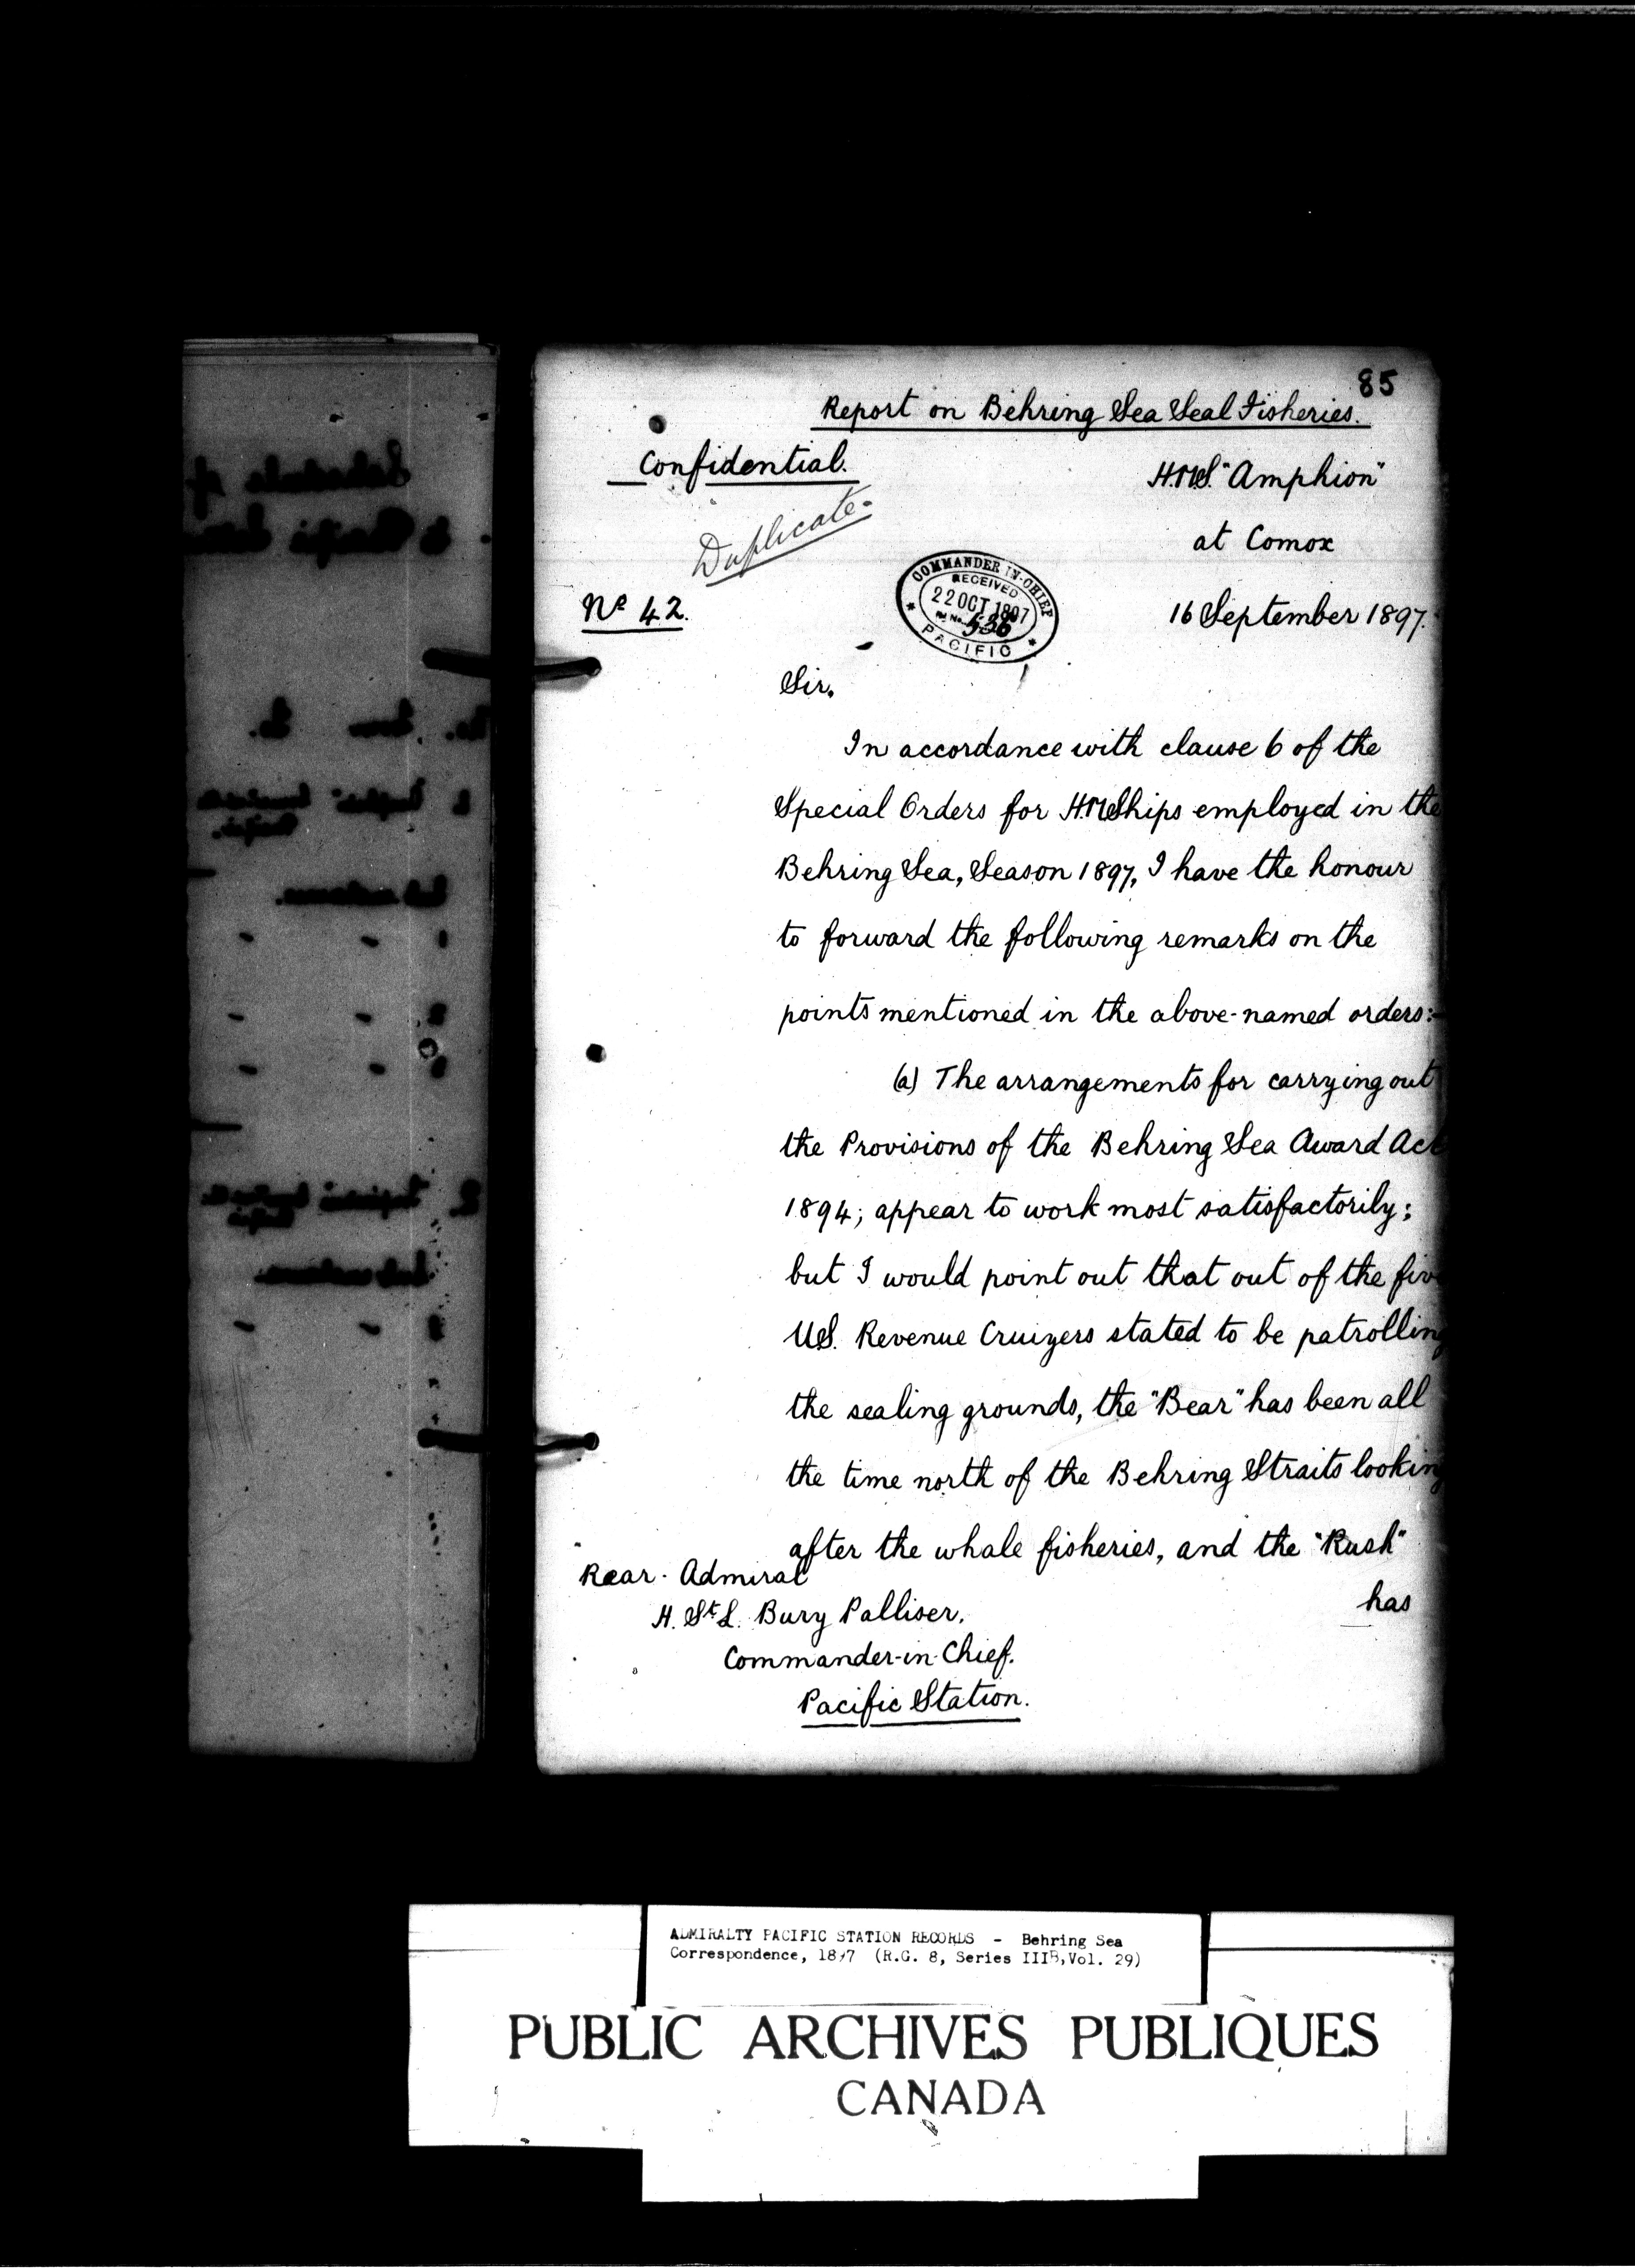 85
Report on Behring Sea Seal Fisheries.
Confidential.
H.M.S. "Amphion"
Duplicate.
at Comox
COMMANDER IN-CHIEF
RECEIVED
22 OCT 1897
536
PACIFIC
No 42.
16 September 1897.
Sir,
In accordance with clause 6 of the
Special Orders for H.M. Ships employed in the
Behring Sea, Season 1897, I have the honour
to forward the following remarks on the
points mentioned in the above-named orders:-
(a) The arrangements for carrying out
the Provisions of the Behring Sea Award Act
1894; appear to work most satisfactorily;
but I would point out that out of the five
U.S. Revenue Cruizers stated to be patrolling
the sealing grounds, the "Bear" has been all
the time north of the Behring Straits looking
after the whale fisheries, and the "Rush"
has
Rear-Admiral
H. St. L. Bury Palliser,
Commander-in-Chief.
Pacific Station.
ADMIRALTY PACIFIC STATION RECORDS - Behring Sea
Correspondence, 1897 (R.G. 8, Series IIIB, Vol. 29)
PUBLIC ARCHIVES PUBLIQUES
CANADA